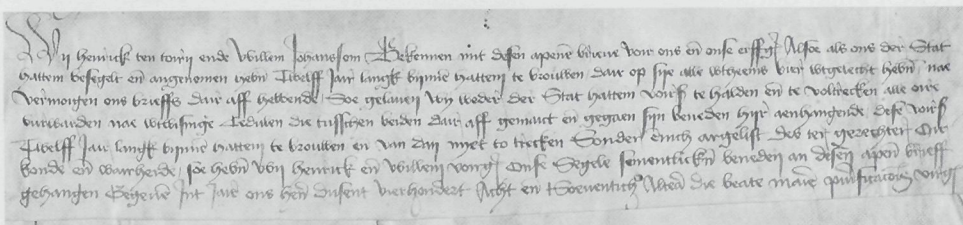 Wij henrick ten torn ende Willem Johanssom Bekennen mit desen apene brieve voir ons en onse erffg Alsoe als ons der Stat
hattem besegelt en angenomen hebn Twelff Jair langk bynne hattem te brouwen dair op sij alle vier utgericht hebn nae
vermogen ons brieffs dair aff hebbende Soe gelaven wij weder der Stat hattem voirs te halden en te voltrecken alle oire
vurwarden nae utwisinge Cedulen die tusschen beiden dair aff gemaict en gegaen sijn beneden hijr aenhangende dese voirs
Twelff Jair langk bynne hattem te brouwen en van dan nyet to trecken Sonder enich argelist des ter gerechter Oir
konde en wairheide soe hebn Wij henrick en Willem vorg Onse Segele sementlickn beneden an desen apen brieff
gehangen Gegeve Int jair ons hern dusent vierhondert Acht en Soeventich die beate marie purificacionis virg